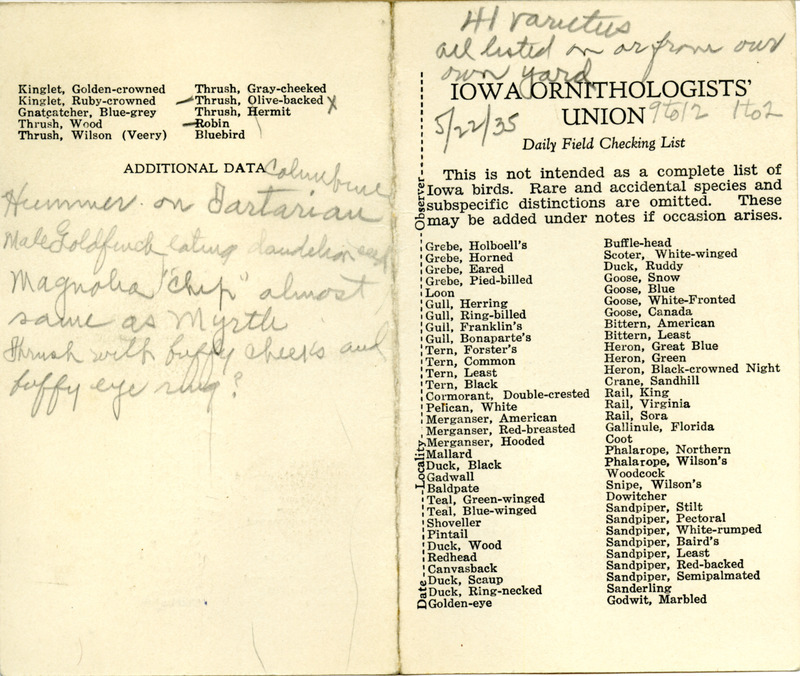 Kinglet, Golden-crowned
Kinglet, Ruby-crowned
Gnatcatcher, Blue-grey
Thrush, Wood
Thrush, Wilson (Veery)
Thrush, Gray-cheeked
Thrush, Olive-backed X
Thrush, Hermit
Robin
Bluebird
ADDITIONAL DATA
Columbine
Hummer on Tartarian
Male Goldfinch eating dandelion seed
Magnolia "chip" almost
same as Myrtle
Thrush with buffy cheeks and
buffy eye ring?
41 varieties
all listed on or from our
own yard
IOWA ORNITHOLOGISTS'
UNION 9 to 12 1 to 2
5/22/35
Daily Field Checking List
This is not intended as a complete list of
Iowa birds. Rare and accidental species and
subspecific distinctions are omitted. These
may be added under notes if occasion arises.
Date Locality Observer
Grebe, Holboell's
Grebe, Horned
Grebe, Eared
Grebe, Pied-billed
Loon
Gull, Herring
Gull, Ring-billed
Gull, Franklin's
Gull, Bonaparte's
Tern, Forster's
Tern, Common
Tern, Least
Tern, Black
Cormorant, Double-crested
Pelican, White
Merganser, American
Merganser, Red-breasted
Merganser, Hooded
Mallard
Duck, Black
Gadwall
Baldpate
Teal, Green-winged
Teal, Blue-winged
Shoveller
Pintail
Duck, Wood
Redhead
Canvasback
Duck, Scaup
Duck, Ring-necked
Golden-eye
Buffle-head
Scoter, White-winged
Duck, Ruddy
Goose, Snow
Goose, Blue
Goose, White-Fronted
Goose, Canada
Bittern, American
Bittern, Least
Heron, Great Blue
Heron, Green
Heron, Black-crowned Night
Crane, Sandhill
Rail, King
Rail, Virginia
Rail, Sora
Gallinule, Florida
Coot
Phalarope, Northern
Phalarope, Wilson's
Woodcock
Snipe, Wilson's
Dowitcher
Sandpiper, Stilt
Sandpiper, Pectoral
Sandpiper, White-rumped
Sandpiper, Baird's
Sandpiper, Least
Sandpiper, Red-backed
Sandpiper, Semipalmated
Sanderling
Godwit, Marbled